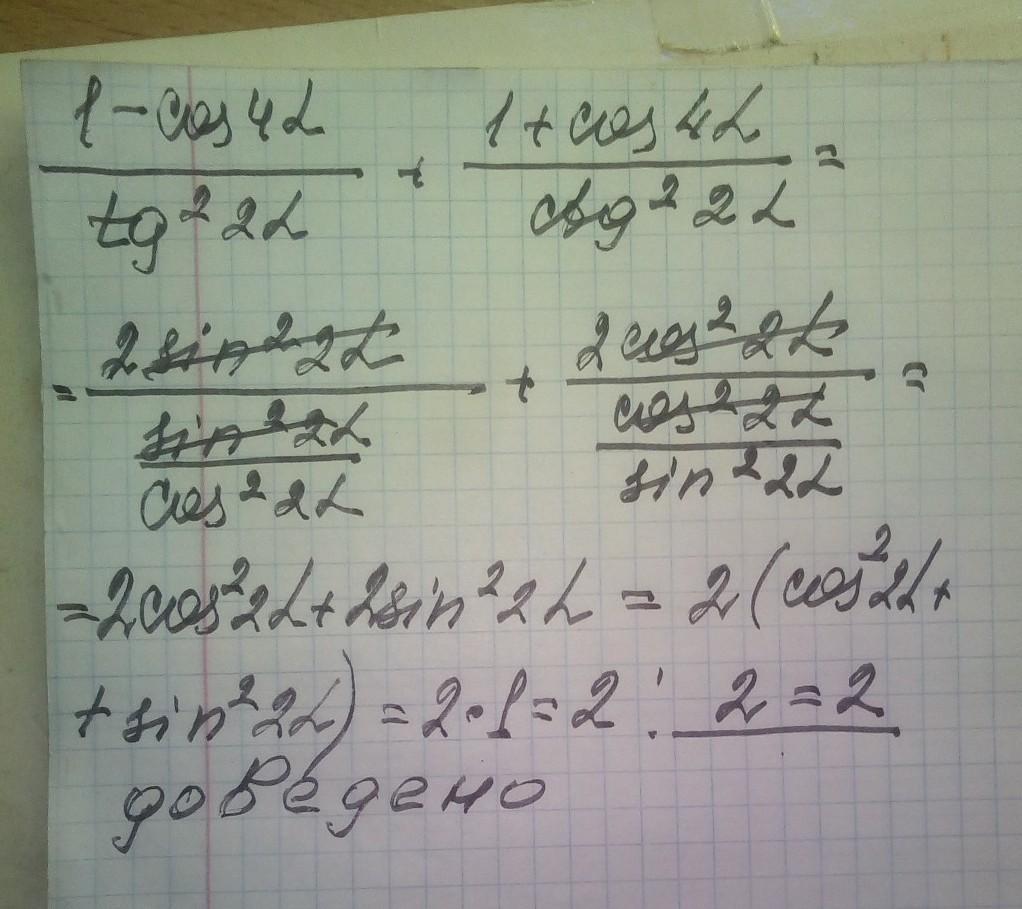 1 - cos 4α / tg² 2α + 1 + cos 4α / ctg² 2α =
= 2 sin² 2α / (sin² 2α / cos² 2α) + 2 cos² 2α / (cos² 2α / sin² 2α) =
= 2cos² 2α + 2sin² 2α = 2 (cos² 2α +
+ sin² 2α) = 2 · 1 = 2 ; 2 = 2
доведено